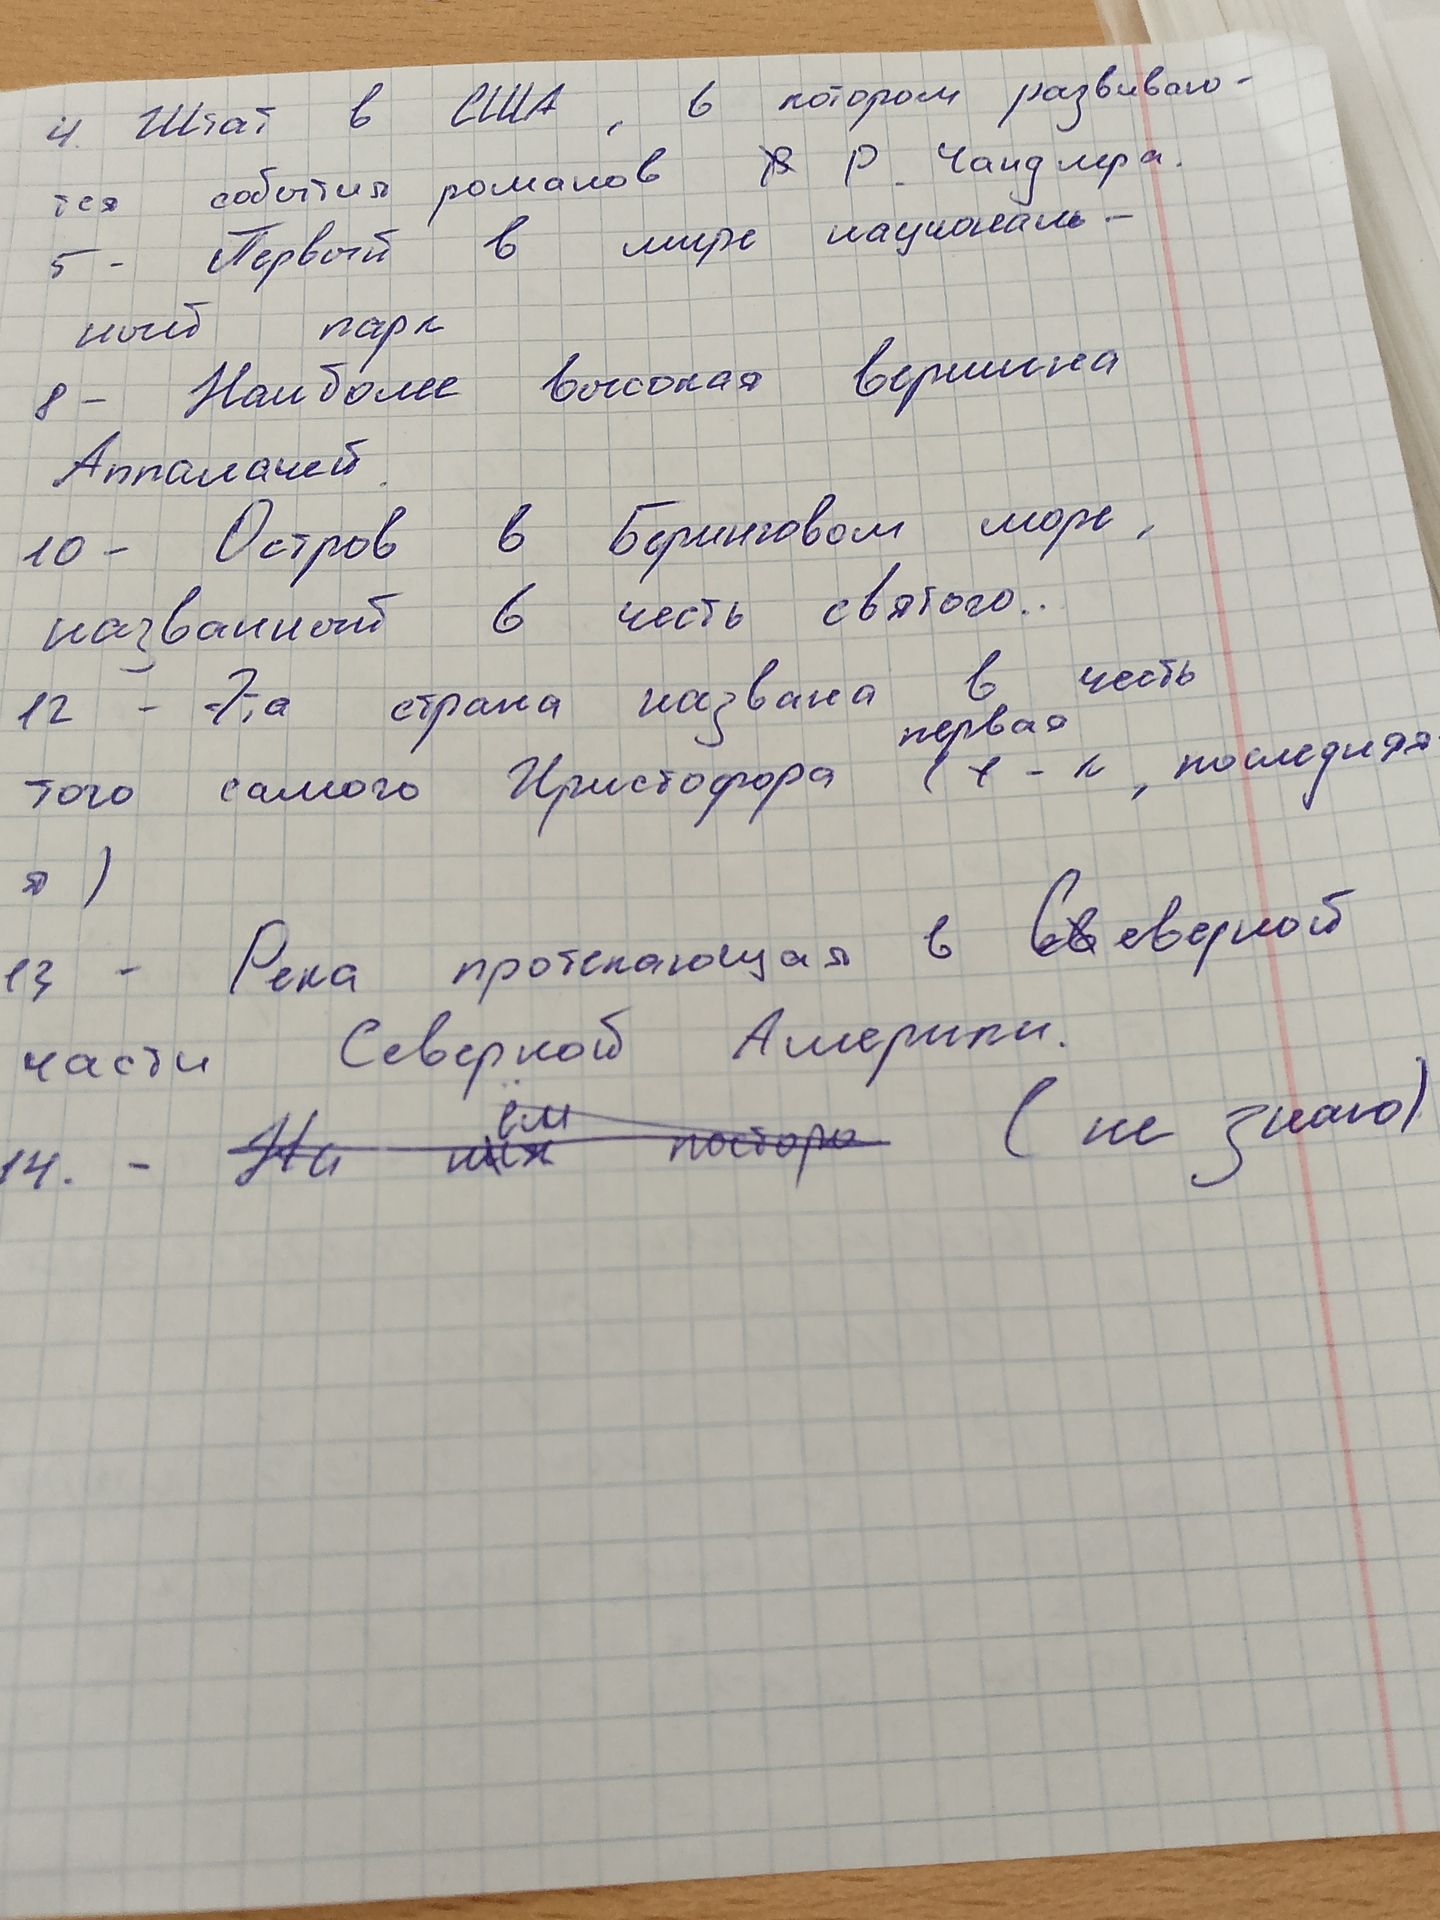 4. Штат в США, в котором развиваю-
тся события романов Р. Чандлера.
5 - Первый в мире националь-
ный парк
8 - Наиболее высокая вершина
Аппалачей.
10 - Остров в Беринговом море,
названный в честь святого..
12 - Эта страна названа в честь
первая
того самого Христофора ( - к, последняя -
я)
13 - Река протекающая в Северной
части Северной Америки.
14. - На нём (не знаю)